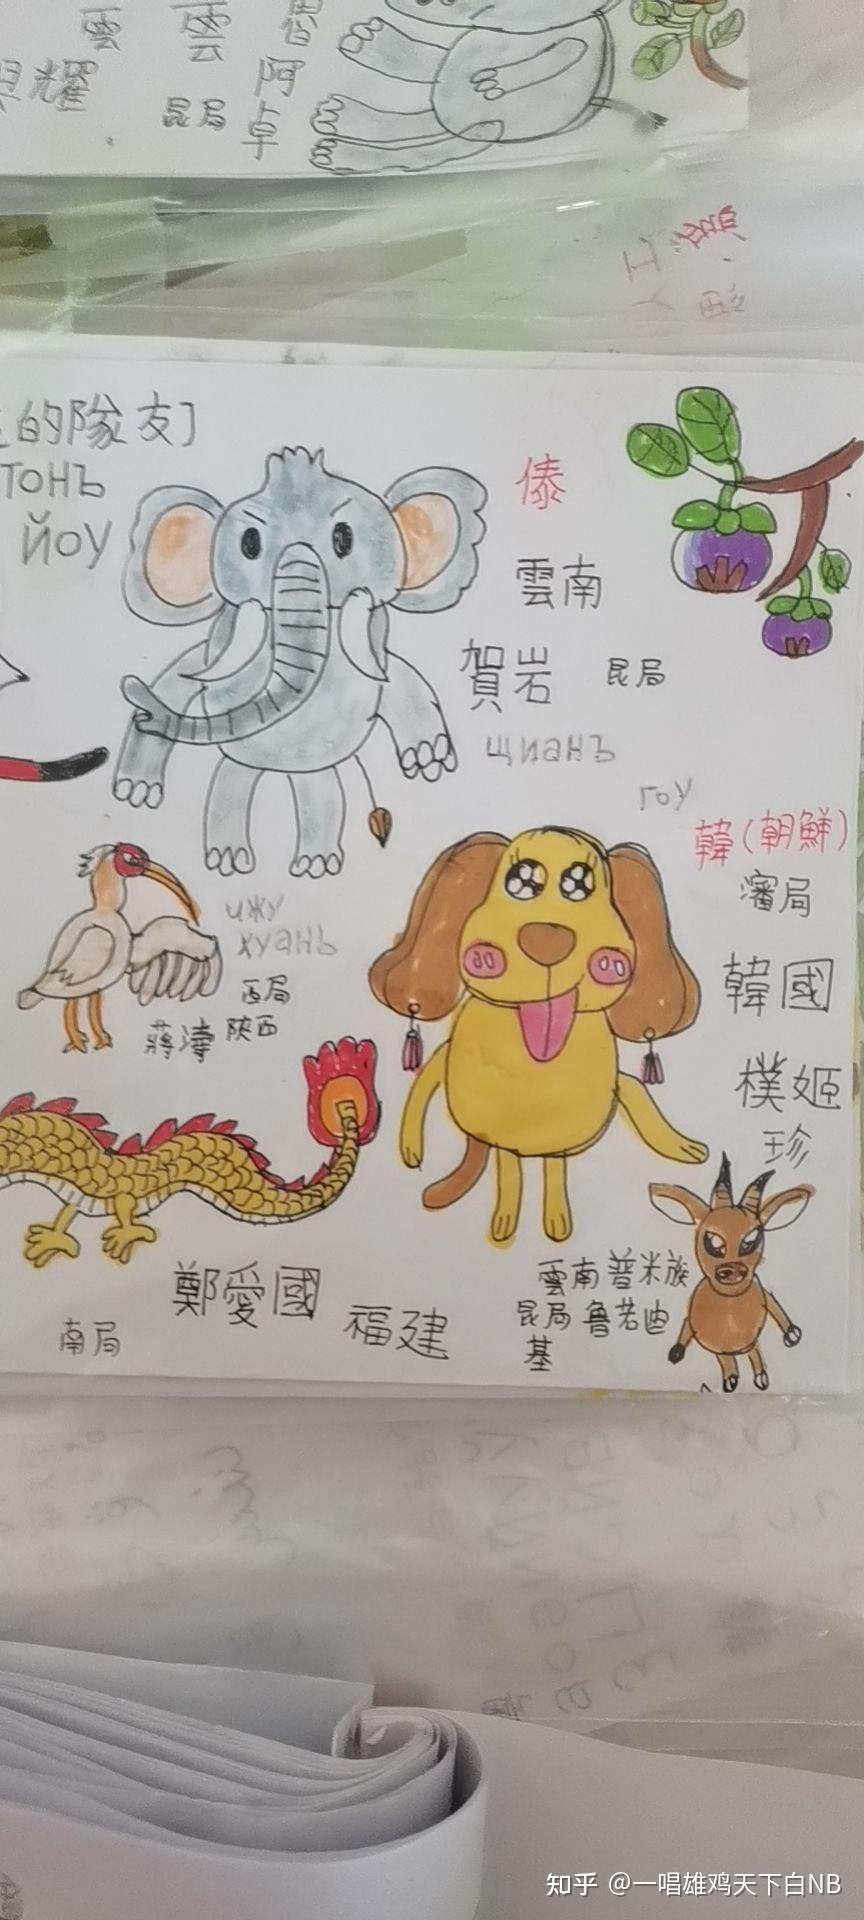 雲
雲
耀
昆局
阿
卓
的隊友]
ТОНЪ
ЙОУ
傣
雲南
賀岩
昆局
щианъ
гоу
韓(朝鮮)
瀋局
韓國
樸姬
珍
ижу
хуань
西局
蔣濤
陝西
鄭愛國
福建
南局
雲南普米族
昆局魯若迪
基
知乎 @一唱雄鸡天下白NB